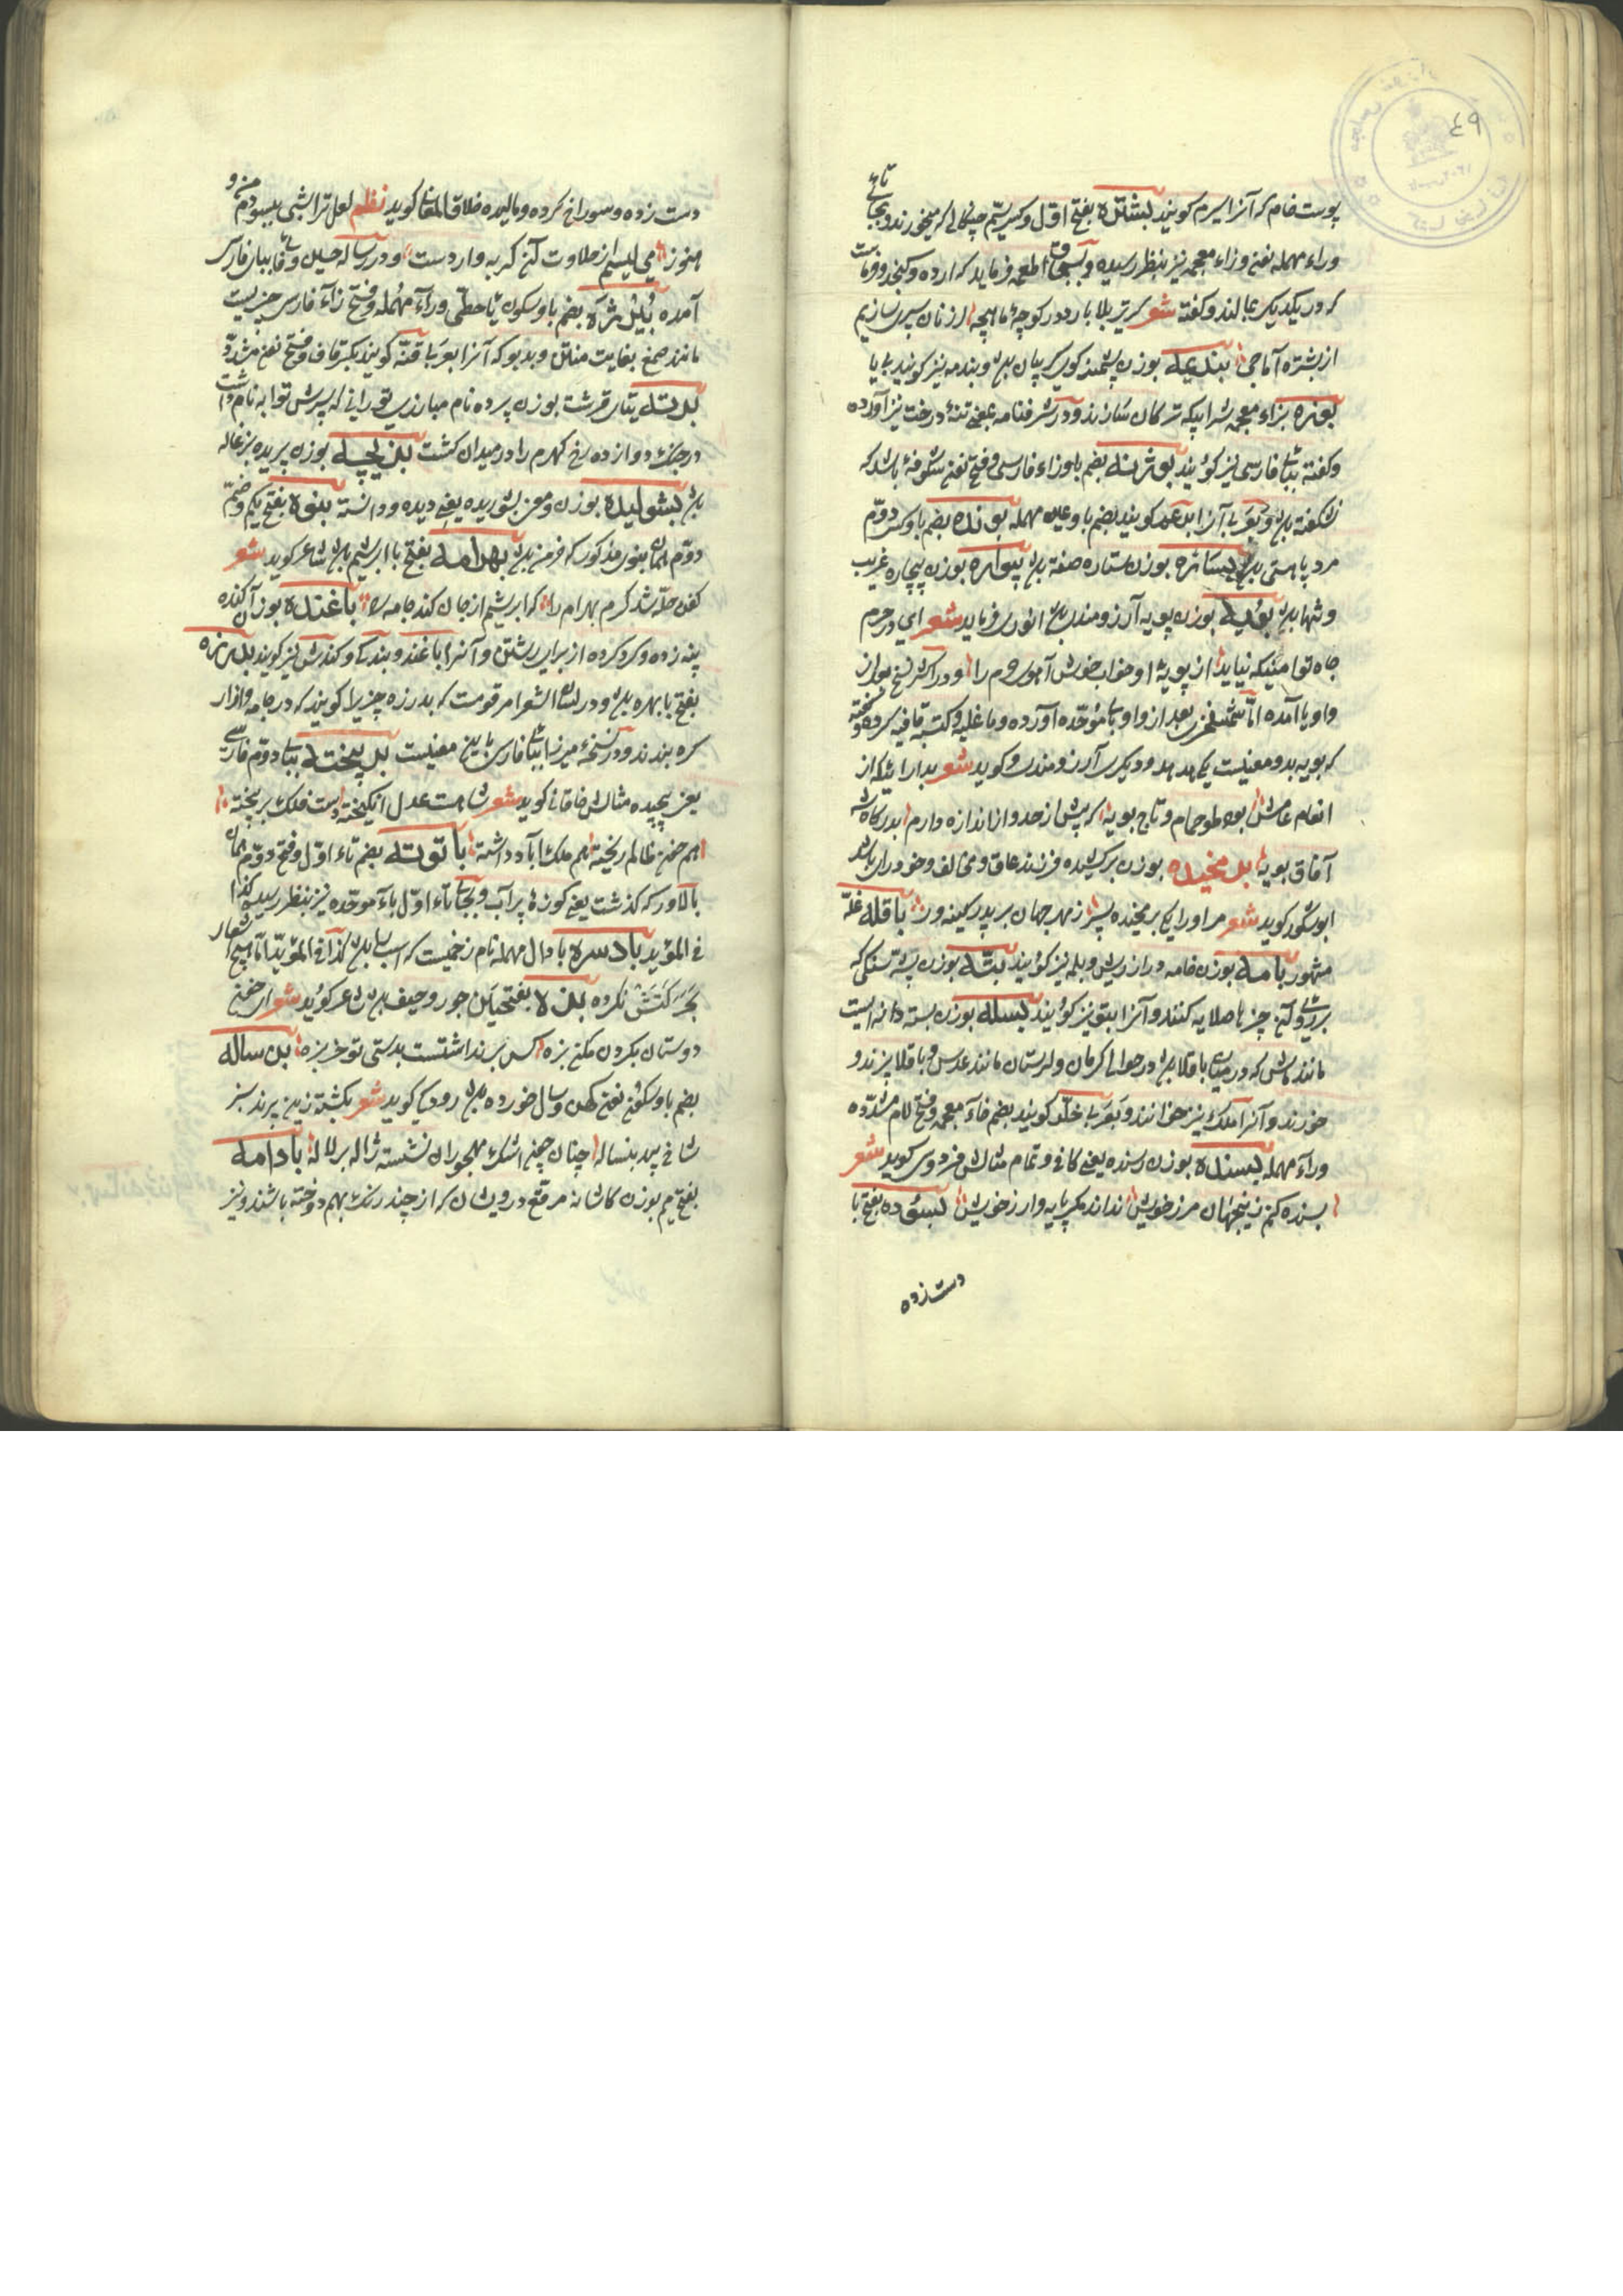 ۴۹
پوست خام که آنرا سیرم کویند بشتره بفتح اوّل و کسر سیّم چنکالی که میخورند و بجای تای
وراء مهمله نون وزاء معجمه نیز بنظر رسیده و بسحاق اطعمه فرماید که ارده و کنجد و خرماست
که در یکدیکر بمالند و کفته شعر کر تیر بلا بارد در کوچهٔ ماهیچه از نان سپری سازیم
از بشتره آماجی بندیمه بوزن پشمینه کوی کریبان بدن و بندمه نیز کویند بی یا
بوزه بزاء معجمه شرابیکه ترکان سازند و در شرفنامه بمعنی تنهٔ درخت نیز آورده
و کفته ببای فارسی نیز کویند بوژنه بضم با و زاء فارسی و فتح نون شکوفهٔ باشد که
نشکفته بدن و بعربی آنرا برعمه کویند بضم با و عین مهمله بونده بضم با و کسر دوّم
مرد باهستی بدن بستاره بوزن ستاره صفه بدن بیواره بوزن بیچاره غریب
و تنها بدن بویه بوزن پویه آرزومندی بدن انوری فرماید شعر ای در حرم
جاه تو امنیکه نیاید از بویهٔ او خواب خوش آهوی حرم را و در اکثر نسخ بعد از
واو یا آمده امّا شمس فخری بعد از واو بای موحّده آورده و با غلبه و کتبه قافیه کرده و کفته
که بوبه بدو معنیست یکی هدهد و دیکری آرزومندی و کوید شعر بدارائیکه از
انعام عامش بود طوحمام و تاج بوبه که پیش از حد و از اندازه دارم بدرکاه شه
آفاق بوبه برمخیده بوزن برکشیده فرزند عاق و مخالف و خودرای باشد
ابوشکور کوید شعر مر او را یکی برمخیده پسر ز بهر جهان بر پدر کینه ور باقله غلّه
مشهور بامه بوزن خامه دراز ریش و بلمه نیز کویند بتّه بوزن پسته سنکی که
بر روی آن چیزها صلایه کنند و آنرا بتو نیز کویند بسله بوزن بسته دانه ایست
مانند ماش که در میان باقلا بدن در حوالی کرمان و لرستان مانند عدس و باقلا پزند و
خورند و آنرا ملک نیز خوانند و بعربی خلّر کویند بضم خاء معجمه و فتح لام مشدّده
وراء مهمله بسنده بوزن رسنده یعنی کافی و تمام مثالش فردوسی کوید شعر
بسنده کنم زینجهان مرز خویش نداند مکر پایه و ارز خویش بسوده بفتح با
دست زده
دست زده و سوراخ کرده و مالیده خلاق المعانی کوید نظم لعل ترا شبی ببسودم من و
هنوز می لیسم از حلاوت آن کربه وار دست و در رساله حسین وفائی ببای فارسی
آمده بیرزه بضم با و سکون یا حطّی وراء مهمله و فتح زاء فارسی چیزیست
مانند صمغ بغایت منتن و بدبو که آنرا بعربی قنّه کویند بکسر قاف و فتح نون مشدّد
برته بتای قرشت بوزن پرده نام مبارزی تورانی که پسرش توابه نام داشت
در جنک دوازده رخ کهرم را در میدان کشت بزیچه بوزن پریده بزغاله
بدن بشولیده بوزن و معنی بشوریده یعنی دیده و دانسته بنوه بفتح یکم و ضم
دوّم همان بنوی مذکور که خرمن بدن بهرامه بفتح با ابریشم بدن شاعر کوید شعر
کفن حلّه شد کرم بهرامه را که ابریشم از جان کند جامه را باغنده بوزن آکنده
پنبه زده و کرد کرده از برای رشتن و آنرا باغند و بندک و کندش نیز کویند بدرزه
بفتح با بهره بدن و در لسان الشعرا مرقومست که بدرزه چیزی را کویند که در جامه و ازار
کره بندند و در نسخهٔ میرزا ببای فارسی باین معنیست برپیخته ببای دوّم فارسی
یعنی پیچیده مثالش خاقانی کوید شعر شاهت عدل انکیخته دست فلک برپیخته
هم خون ظالم ریخته هم ملک آباد داشته باتوته بضم تاء اوّل و فتح دوّم همان
بالاور که کذشت یعنی کوزهٔ پر آب و بجای تاء اوّل باء موحّده نیز بنظر رسیده کذا
فی المؤید بادسره با دال مهمله نام زخمیست که اسب را بدن کذا فی المؤید امّا هیچ اشعار
بحرکتش نکرده بزه بفتحتین جور و حیف بدن شاعر کوید شعر از خون
دوستان بکردن مکن بزه کس بر نداشتست بدستی دو خربزه بزساله
بضم با و سکون نون کهن و سال خورده بدن رودکی کوید شعر بکشته زین پرند سبز
شاخ بید بنساله چنان چون اشک مهجوران نشسته ژاله بر لاله بادامه
بفتح میم بوزن کاشانه مرقع درویشان که از چند رنک بهم دوخته باشند و نیز